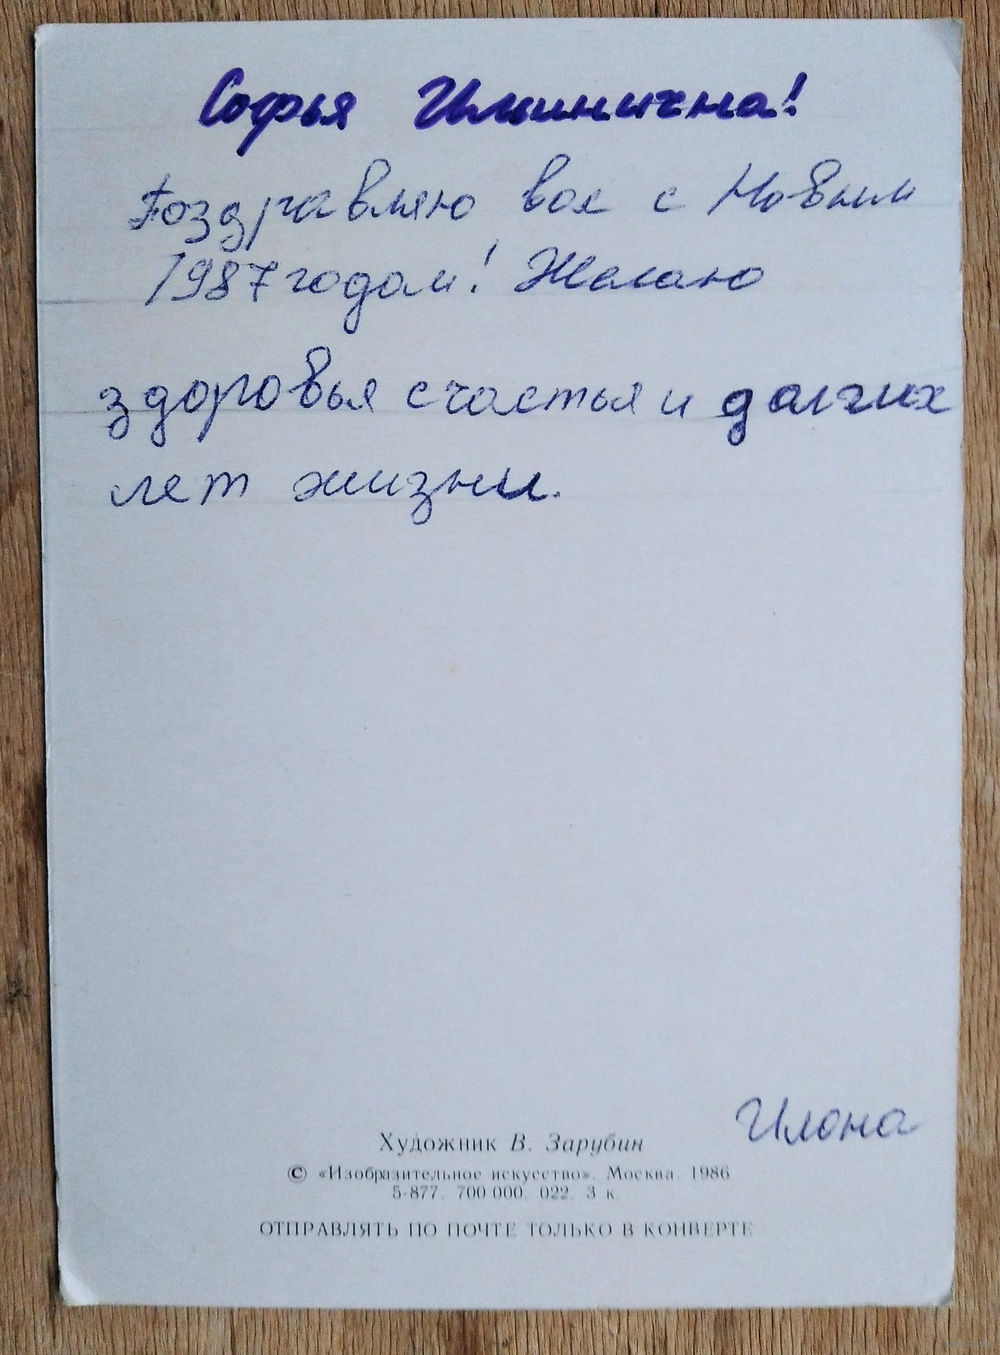 Софья Ильинична!
Поздравляю вас с Новым
1987 годом! Желаю
здоровья счастья и долгих
лет жизни.
Илона
Художник В. Зарубин
© «Изобразительное искусство». Москва. 1986
5-877. 700 000. 022. 3 к.
ОТПРАВЛЯТЬ ПО ПОЧТЕ ТОЛЬКО В КОНВЕРТЕ